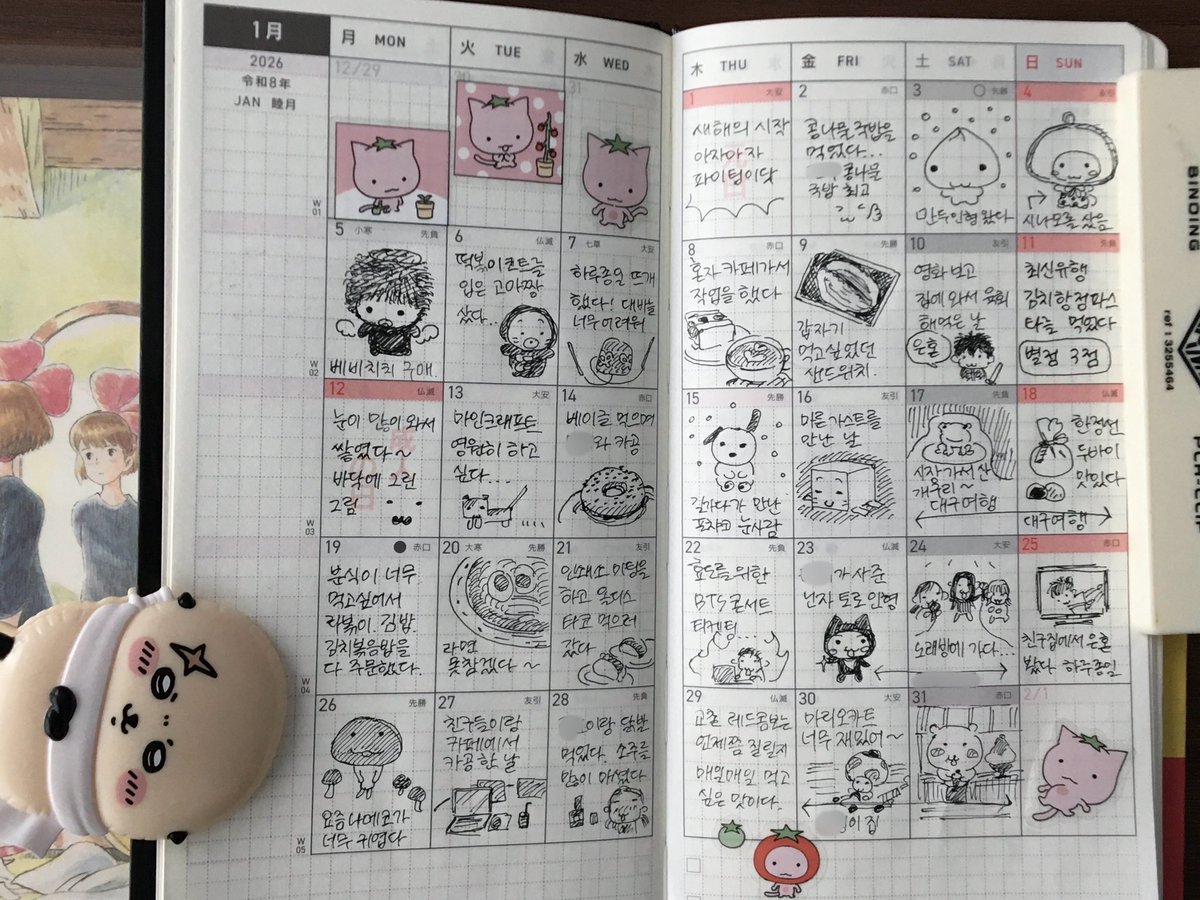 1月
2026
令和8年
JAN 睦月
月 MON
火 TUE
水 WED
木 THU
金 FRI
土 SAT
日 SUN
12/29
30
31
W
01
1 大安
새해의 시작
아자아자
파이팅이닷
2 赤口
콩나물 국밥을
먹었다...
콩나물
국밥 최고
3 先勝
만두인형 왔다
4 友引
시나모롤 샀음
5 小寒 先負
베비치치 구매.
W
02
6 仏滅
떡볶이코트를
입은 고마짱
샀다...
7 七草 大安
하루종일 뜨개
했다! 대바늘
너무 어려워
8 赤口
혼자 카페가서
작업을 했다
9 先勝
갑자기
먹고싶었던
샌드위치.
10 友引
영화 보고
집에 와서 육회
해먹은 날
은혼
11 先負
최신유행
김치항정파스
타를 먹었다
별점 3점
12 仏滅
成人の日
눈이 많이 와서
쌓였다~
바닥에 그린
그림
W
03
13 大安
마인크래프트
영원히 하고
싶다...
14 赤口
베이글 먹으며
와 카공
15 先勝
길가다가 만난
포차코 눈사람
16 友引
마른 가스트를
만난 날
17 先負
시장가서 산
개구리~
대구여행
18 仏滅
한정선
두바이
맛있다
대구여행
19 赤口
분식이 너무
먹고싶어서
라볶이. 김밥.
김치볶음밥을
다 주문했다.
W
04
20 大寒 先勝
라면
못참겠다~
21 友引
인쇄소 미팅을
하고 올디스
타코 먹으러
갔다
22 先負
효도를 위한
BTS 콘서트
티케팅...
23 仏滅
가 사준
닌자 토로 인형
24 大安
노래방에 가다...
25 赤口
친구집에서 은혼
봤다 하루종일
26 先勝
요즘 나메코가
너무 귀엽다
W
05
27 友引
친구들이랑
카페에서
카공 한 날
28 先負
이랑 닭발
먹었다. 소주를
많이 마셨다
29 仏滅
교촌 레드콤보는
언제쯤 질릴지
매일매일 먹고
싶은 맛이다.
30 大安
마리오카트
너무 재밌어~
이 집
31 赤口
2/1
BINDING
ref : 3255464